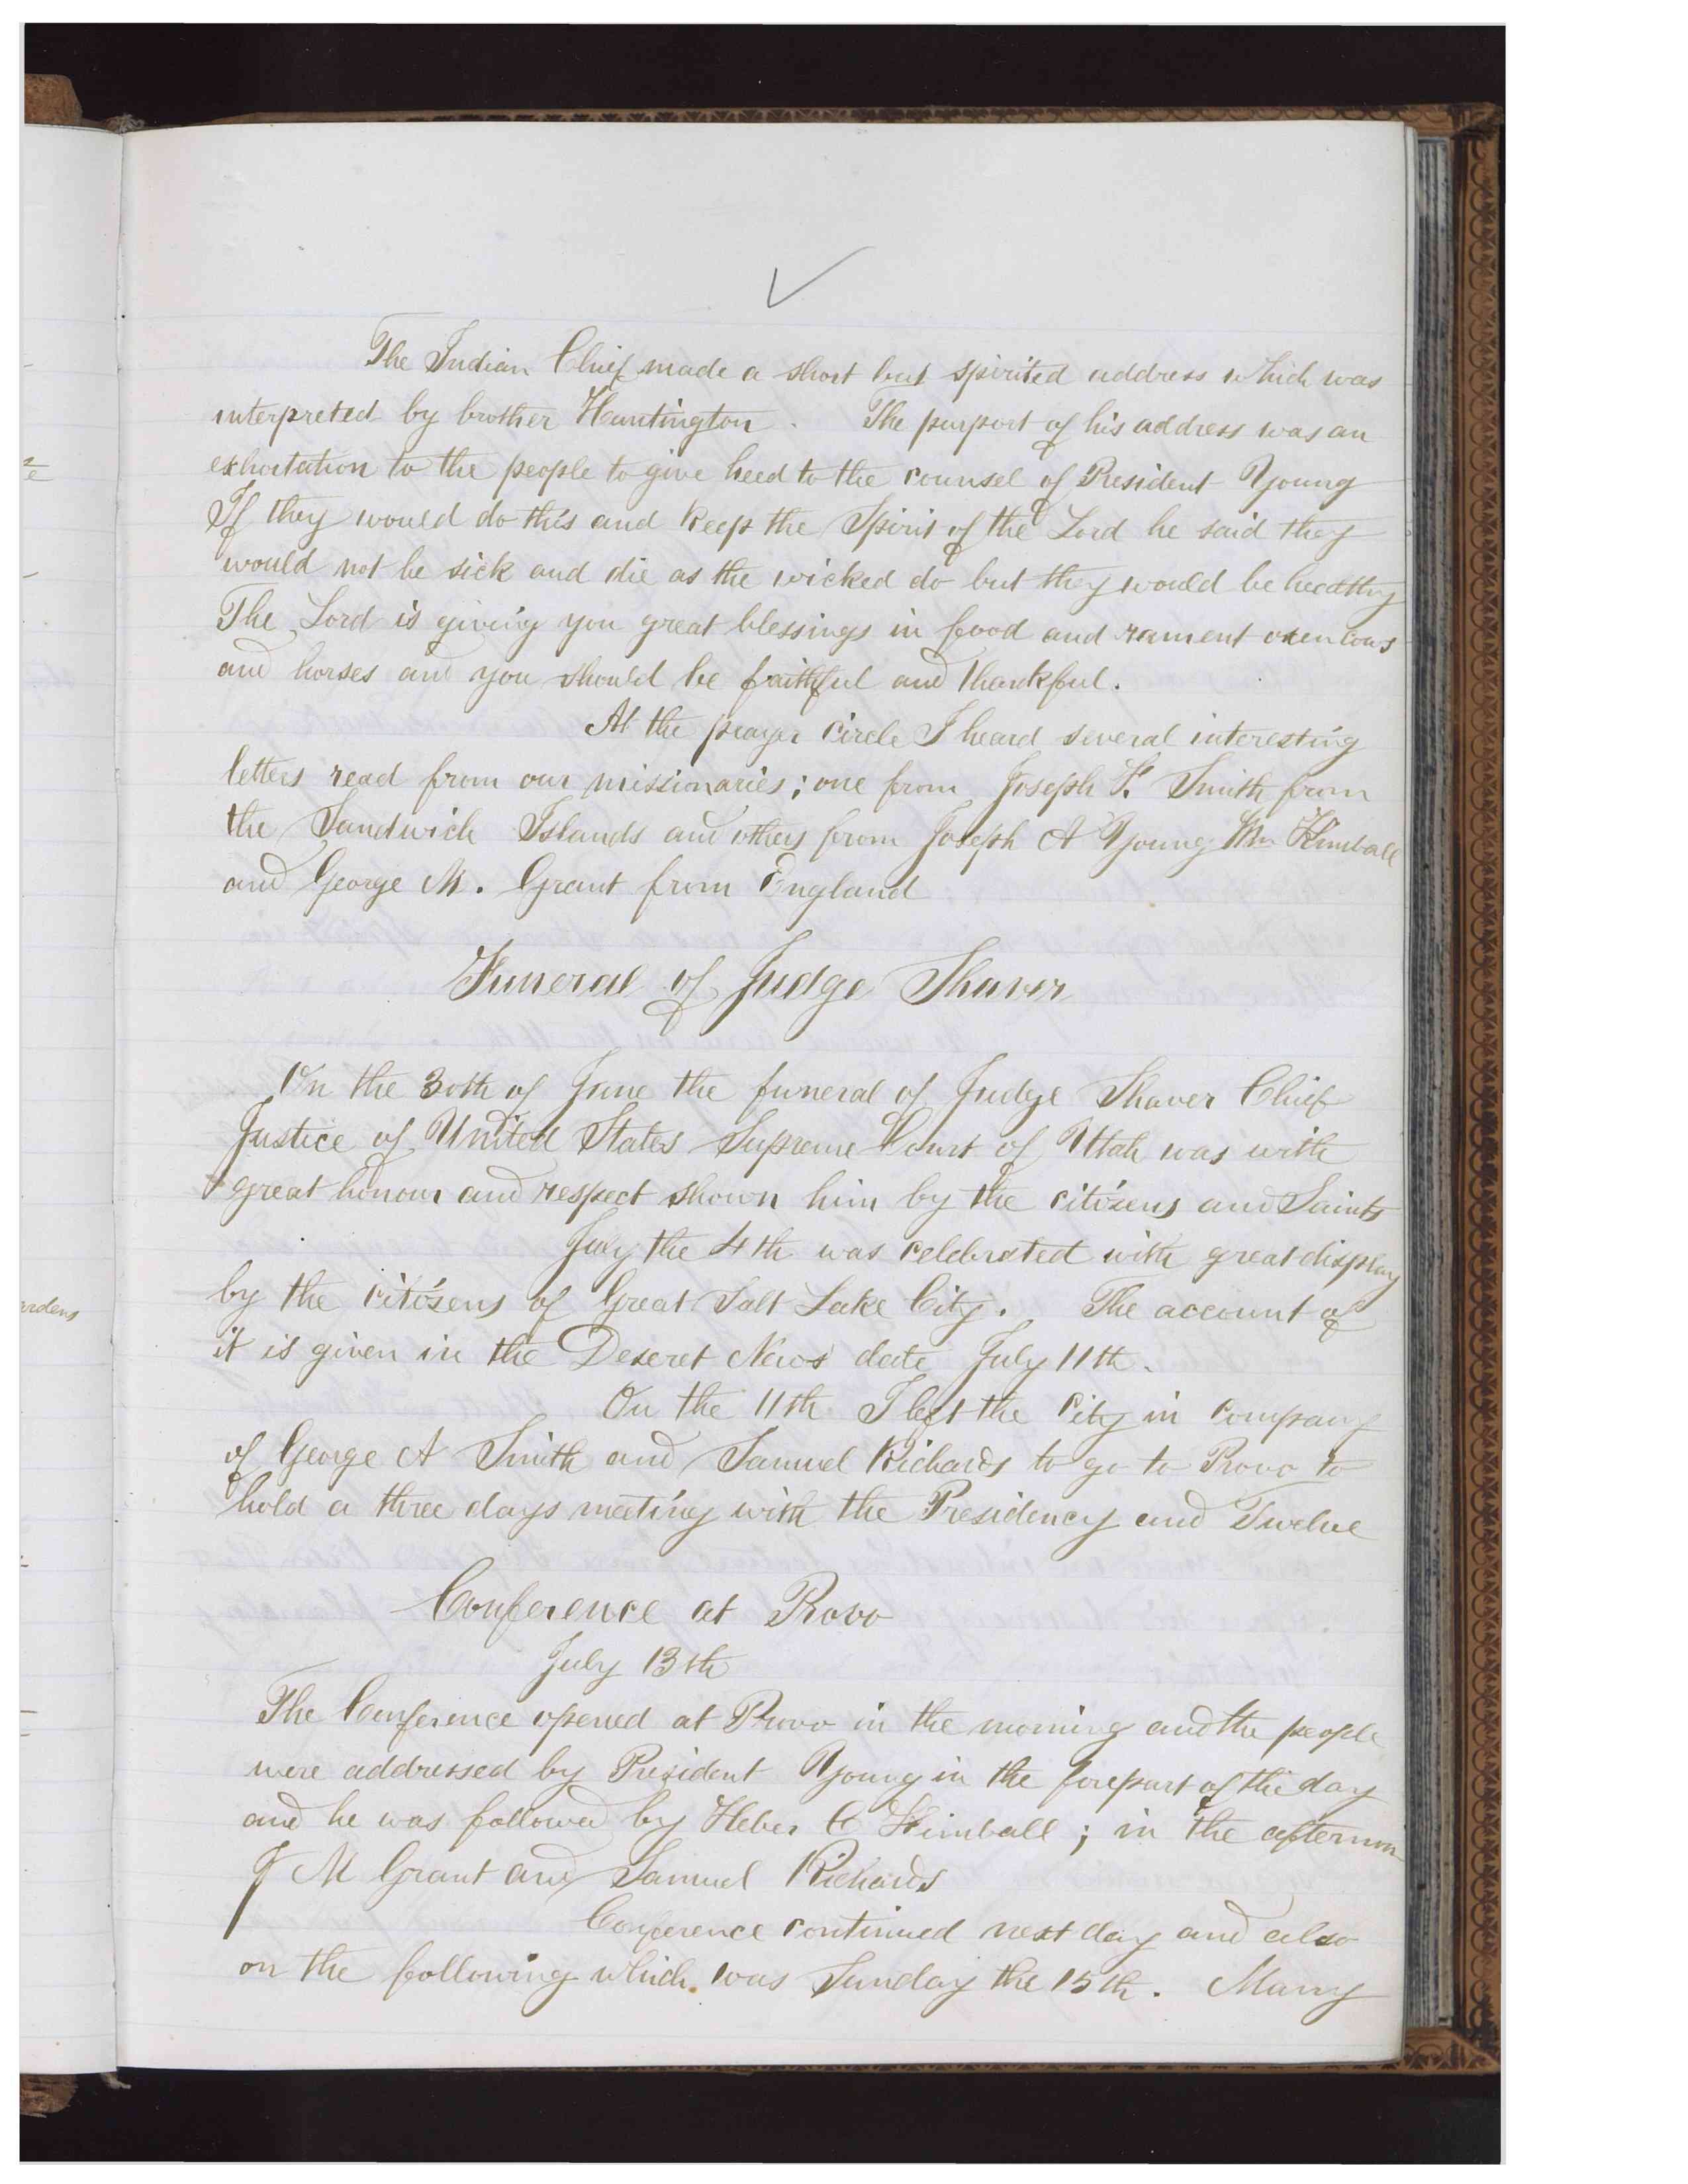 The Indian Chief made a short but spirited address which was
interpreted by brother Huntington. The purport of his address was an
exhortation to the people to give heed to the counsel of President Young
If they would do this and keep the Spirit of the Lord he said they
would not be sick and die as the wicked do but they would be healthy
The Lord is giving you great blessings in food and rament oxen cows
and horses and you should be faithful and thankful.
At the prayer circle I heard several interesting
letters read from our missionaries; one from Joseph F. Smith from
the Sandwich Islands and others from Joseph A Young Wm Kimball
and George M. Grant from England
Funeral of Judge Shaver
On the 30th of June the funeral of Judge Shaver Chief
Justice of United States Supreme Court of Utah was with
great honour and respect shown him by the citizens and Saints
July the 4th was celebrated with great display
by the citizens of Great Salt Lake City. The account of
it is given in the Deseret News date July 11th.
On the 11th I left the City in company
of George A Smith and Samuel Richards to go to Provo to
hold a three days meeting with the Presidency and Twelve
Conference at Provo
July 13th
The Conference opened at Provo in the morning and the people
were addressed by President Young in the forepart of the day
and he was followed by Heber C Kimball; in the afternoon
J M Grant and Samuel Richards
Conference continued next day and also
on the following which was Sunday the 15th. Many